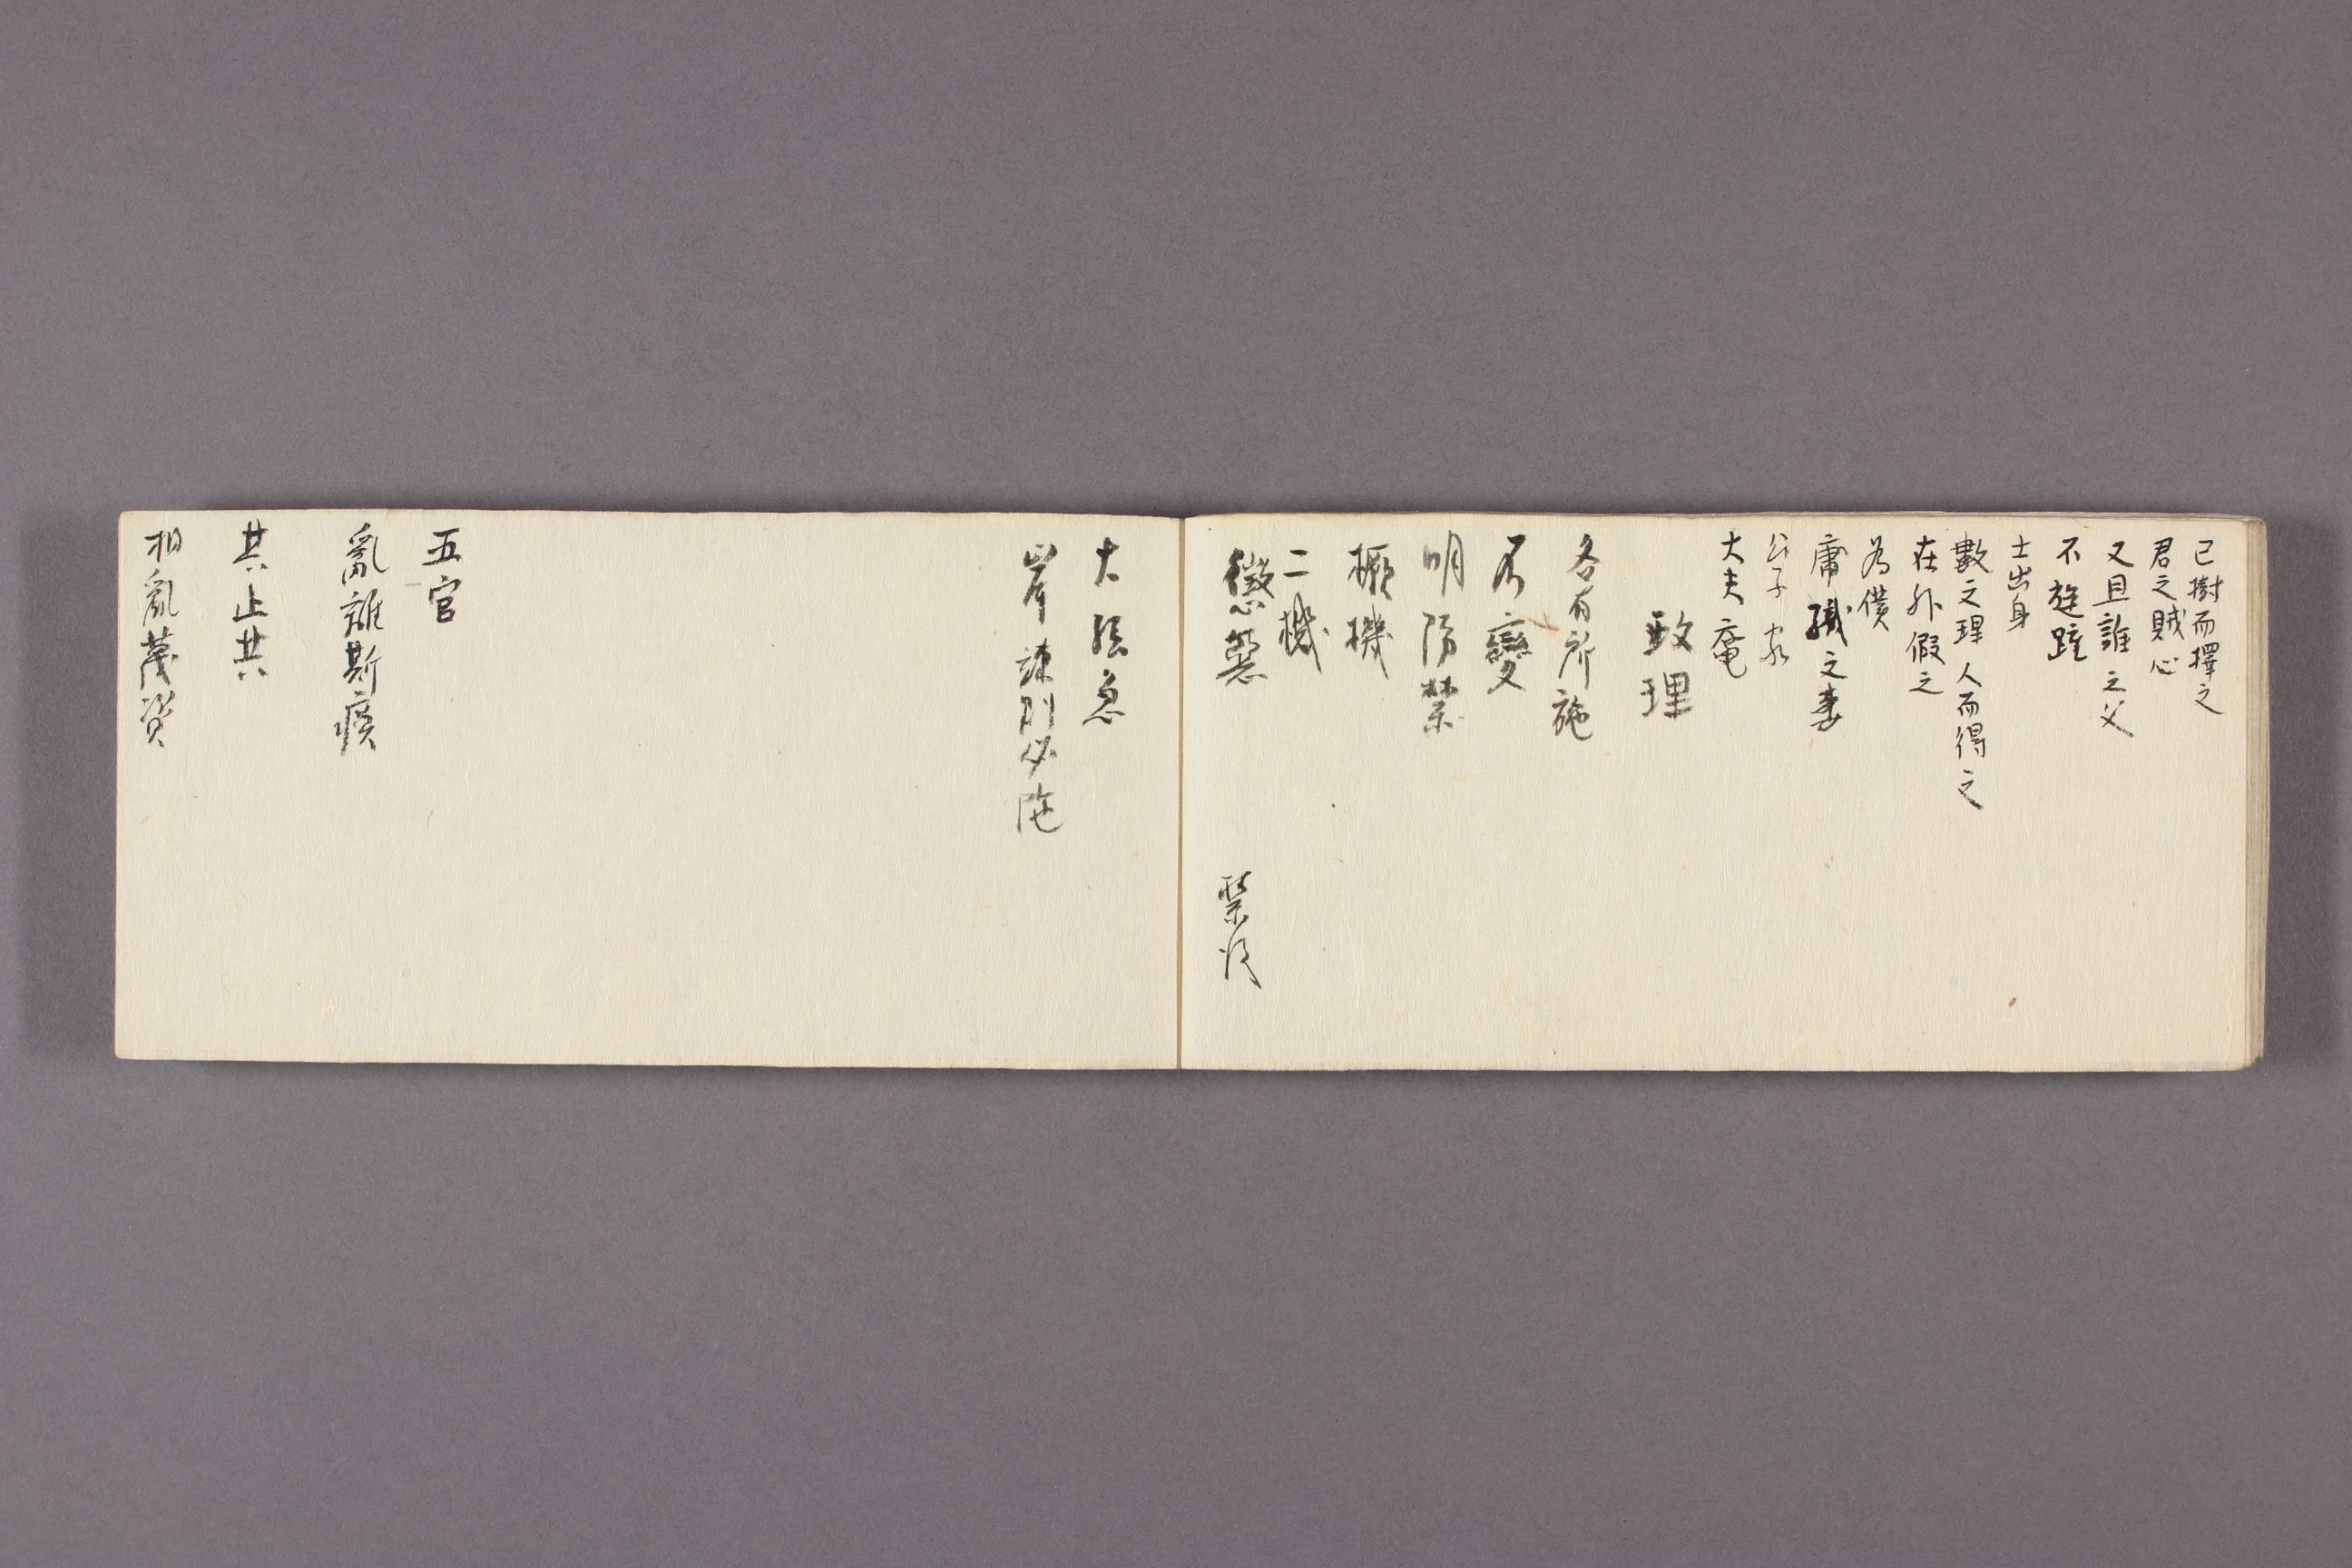 已樹而擇之
君之賊心
又且誰之父
不旋踵
士出身
數之理人而得之
在外假之
為僕
庸織之妻
公子家
大夫奄
致理
各有所施
不變
明防禁
橛機
二機
懲
禁
大弦急
岸 則必阤
五官
亂離斯瘼
共止共
相亂蔑資